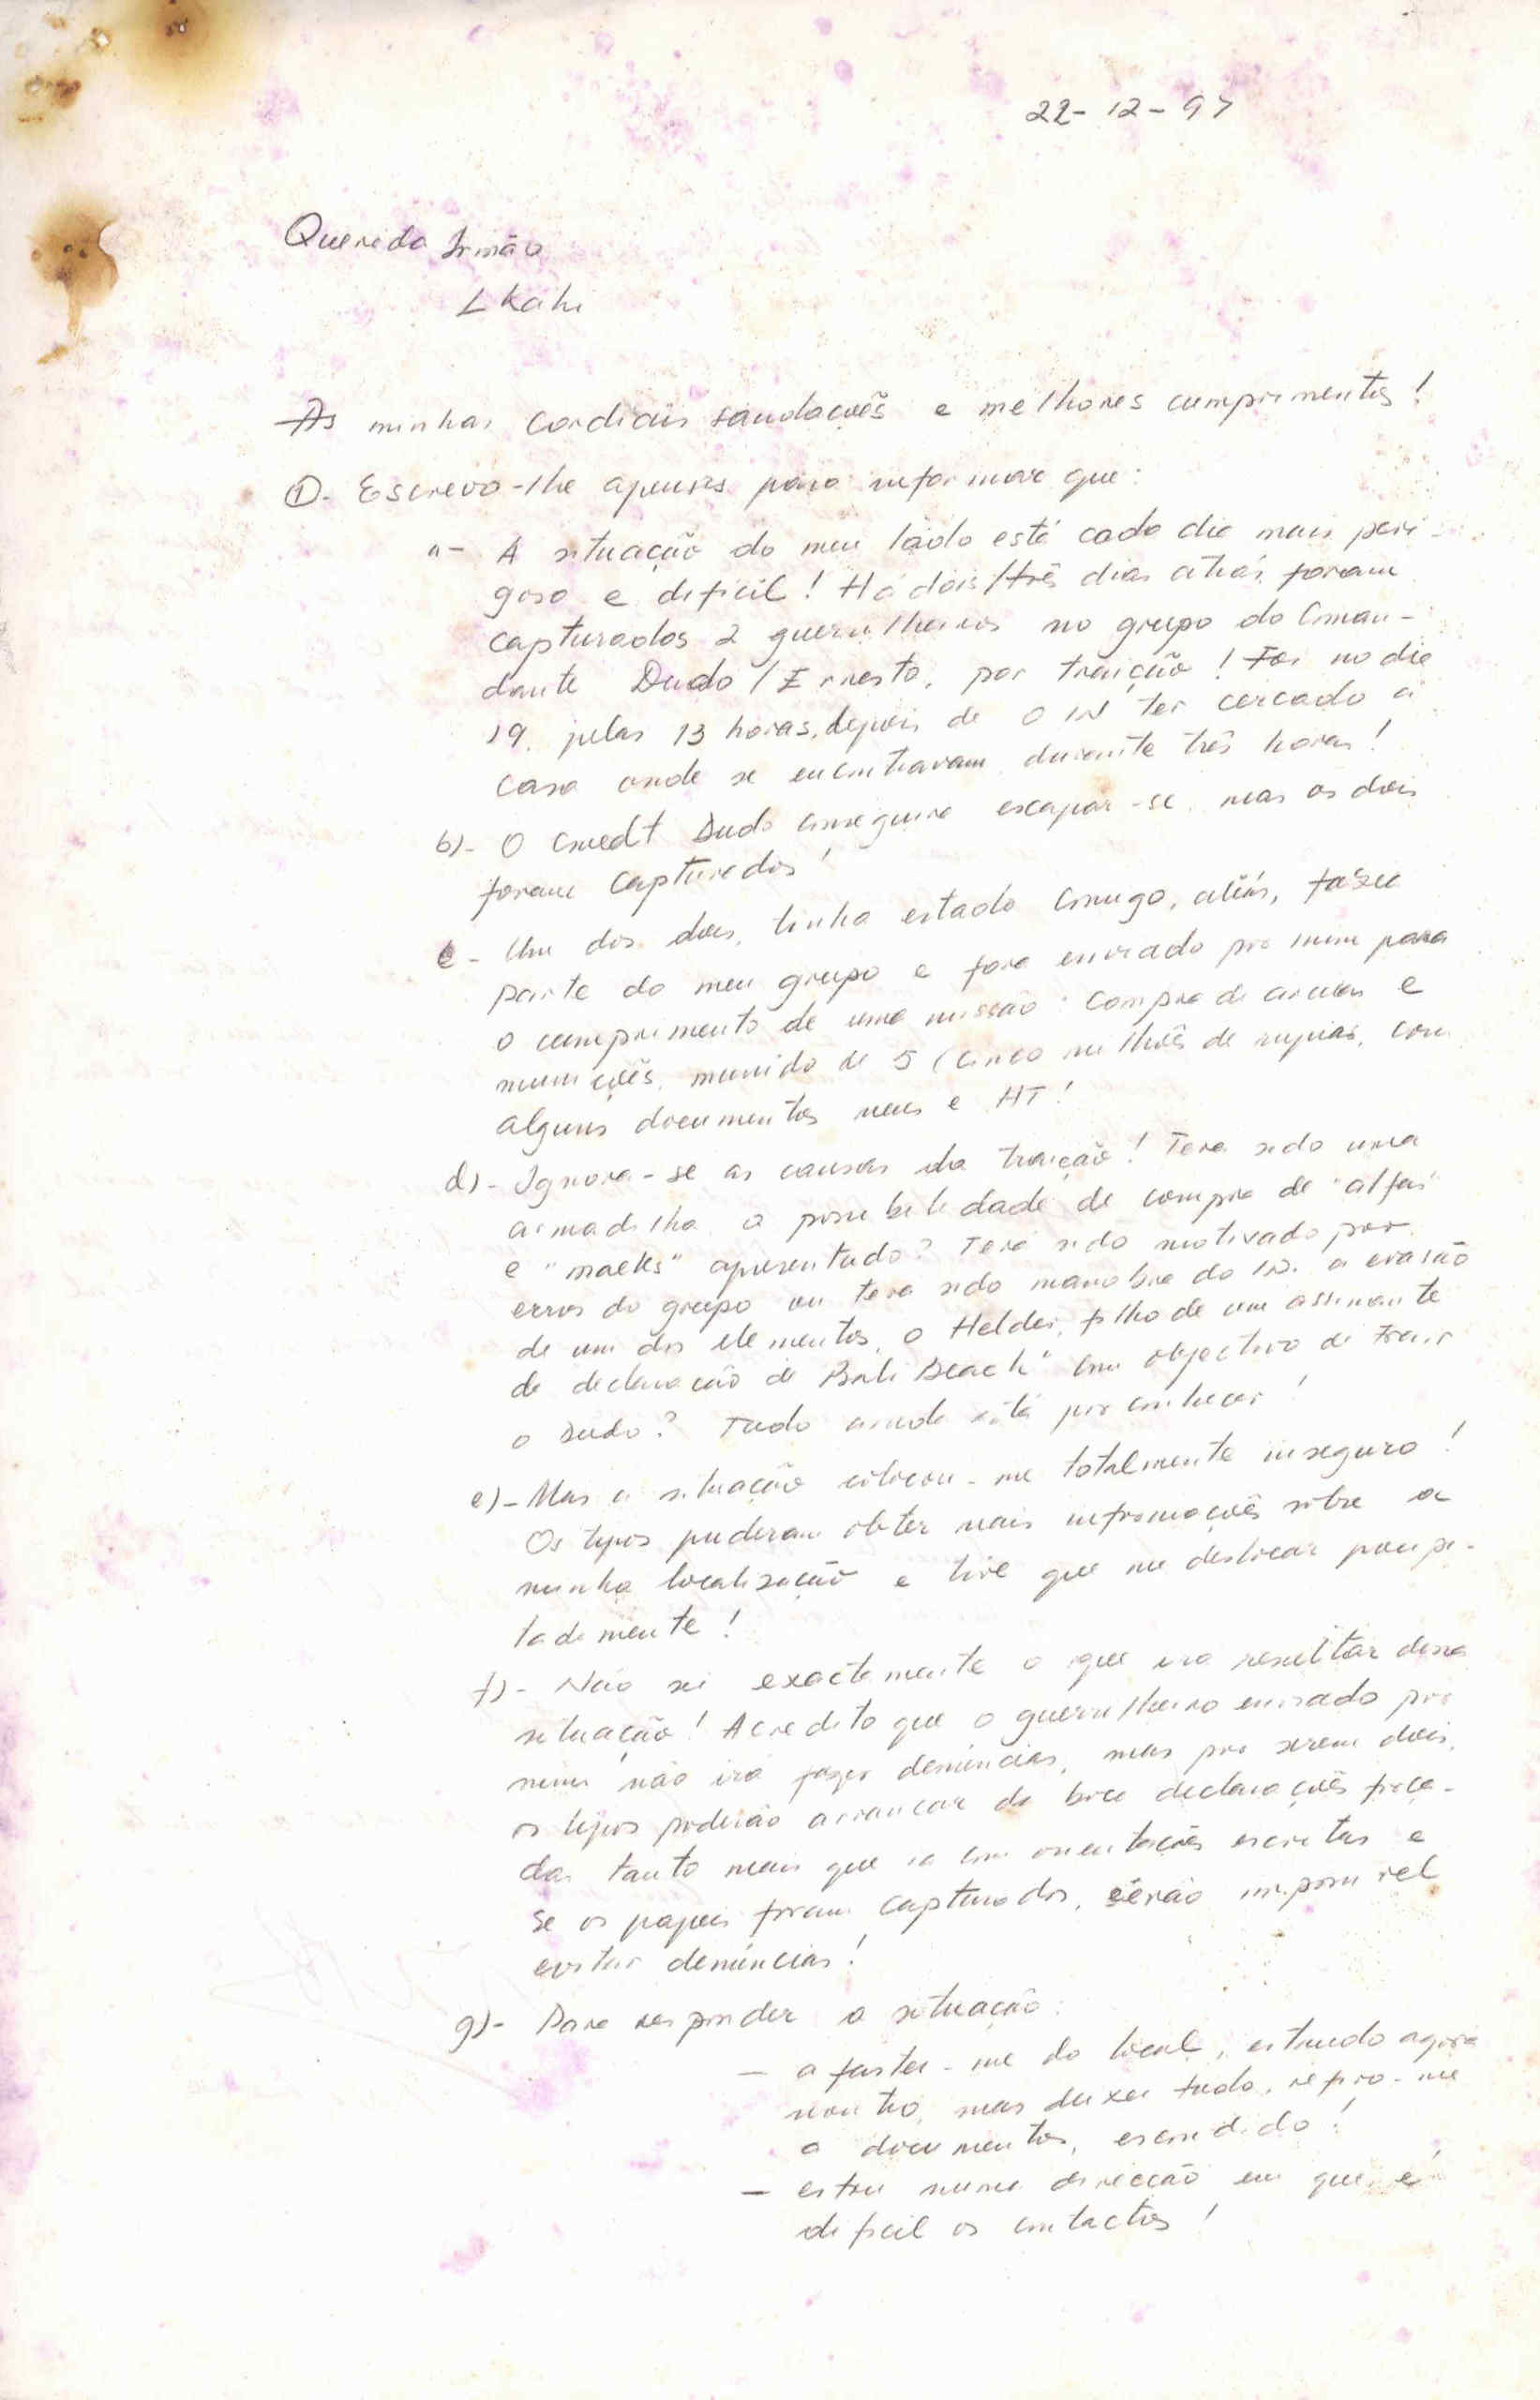 22-12-97
Querido Irmão
L Kahi
As minhas cordiais saudações e melhores cumprimentos!
①- Escrevo-lhe apenas para informar que:
a- A situação do meu lado está cada dia mais peri-
goso e difícil! Há dois/três dias atrás, foram
capturados 2 guerrilheiros no grupo do Coman-
dante Dudo/Ernesto, por traição! Foi no dia
19, pelas 13 horas, depois de o IN ter cercado a
casa onde se encontravam durante três horas!
b)- O Cmdt Dudo conseguira escapar-se, mas os dois
foram capturados!
c- Um dos dois, tinha estado comigo, aliás, fazia
parte do meu grupo e fora enviado por mim para
o cumprimento de uma missão: compra de armas e
munições, munido de 5 (cinco milhões de rupias, com
alguns documentos meus e HT!
d)- Ignora-se as causas da traição! Terá sido uma
armadilha a possibilidade de compra de "alfas"
e "maeks" apresentado? Terá sido motivado por
erros do grupo ou terá sido manobra do IN. a evasão
de um dos elementos, o Helder, filho de um assinante
da declaração de Bali Beach" com objectivo de trair
o Dudo? Tudo ainda está por conhecer!
e)- Mas a situação colocou-me totalmente inseguro!
Os tipos puderam obter mais informações sobre a
minha localização e tive que me deslocar precipi-
tadamente!
f)- Não sei exactamente o que irá resultar dessa
situação! Acredito que o guerrilheiro enviado por
mim não irá fazer denúncias, mas por serem dois,
os tipos poderão arrancar da boca declarações força-
das tanto mais que ia com orientações escritas e
se os papeis foram capturados, serão impossível
evitar denúncias!
g)- Para responder a situação:
- afastei-me do local, estando agora
noutro, mas deixei tudo, refiro-me
a documentos, escondido!
- estou numa direcção em que é
difícil os contactos!